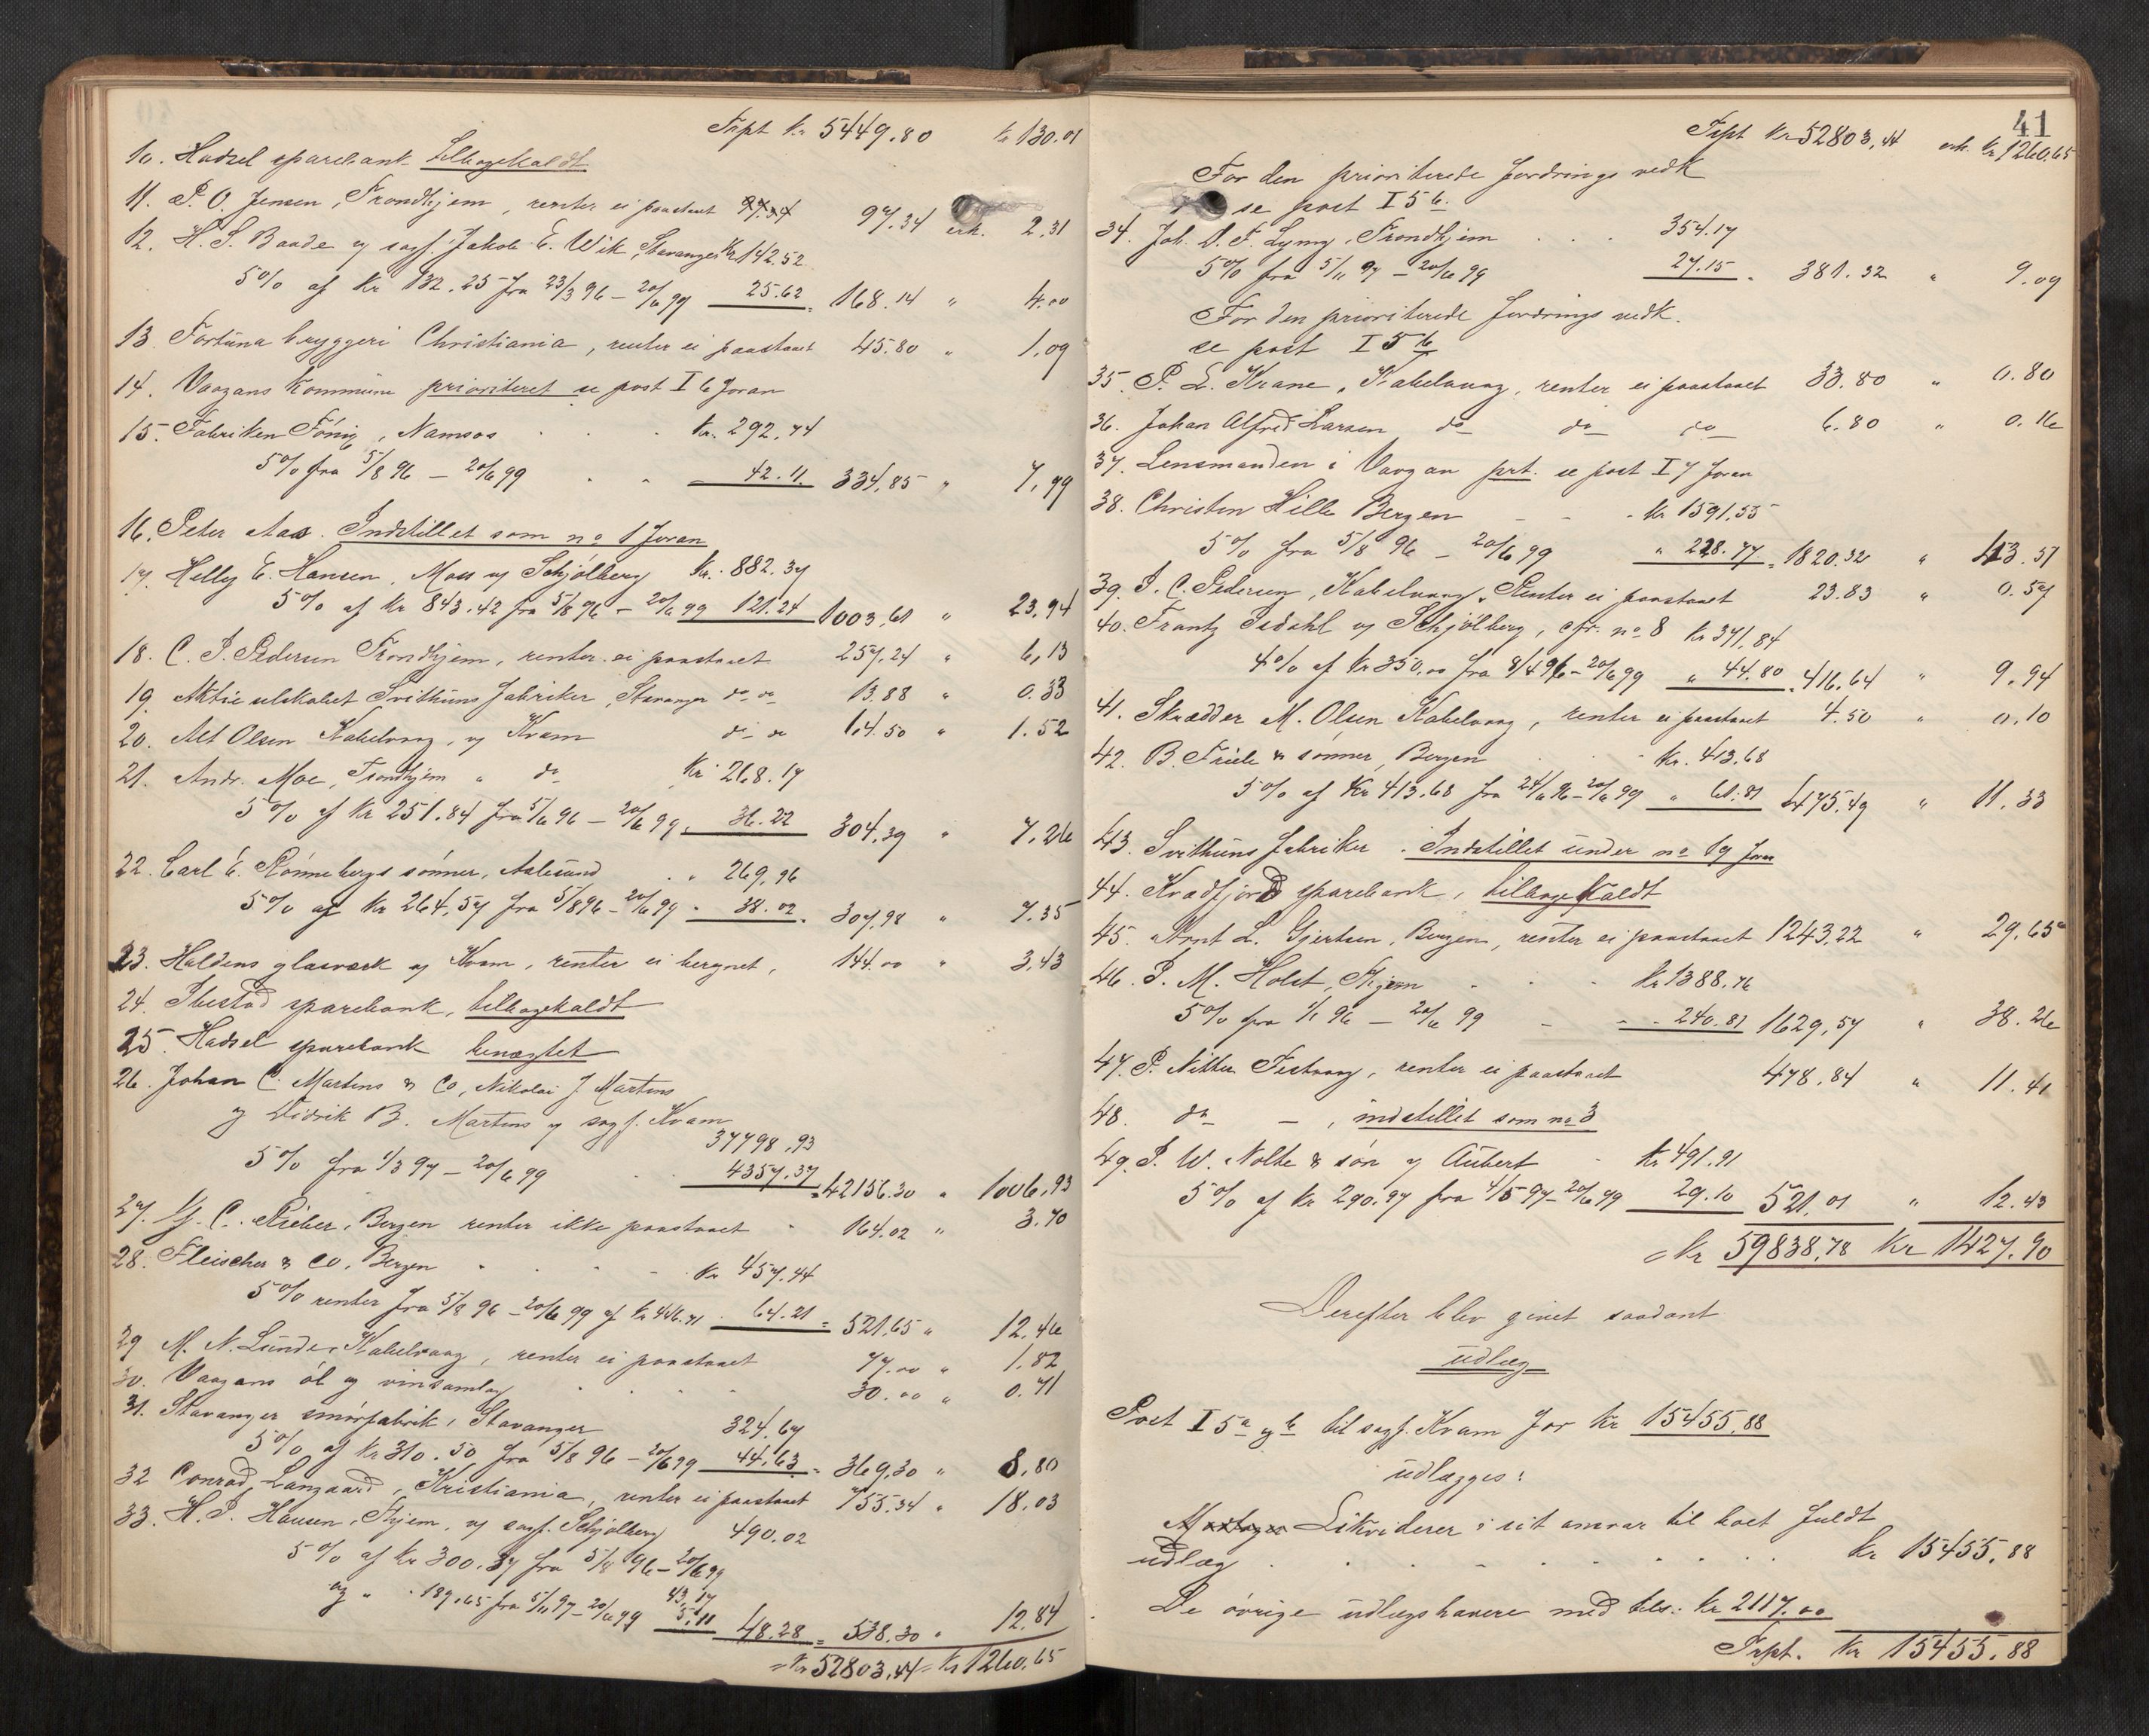 Trpt Kr 5449.80 Kr 130.01
10. Hadsel sparebank tilbagekaldt
11. P. O. Jensen, Trondhjem, renter ei paastaaet 97.34 erh. 2.31
12. H. S. Baade og sagf. Jakob E. Wik, Stavanger Kr 142.52
5% af Kr 132.25 fra 23/3 96 – 20/6 99 25.62 = 168.14 " 4.00
13. Fortuna bryggeri Christiania, renter ei paastaaet 45.80 " 1.09
14. Vaagans Kommune prioriteret se post I 6 foran
15. Fabriken Fönix, Namsos . . . Kr. 292.74
5% fra 5/8 96 – 20/6 99 . . 42.11. 334.85 " 7.99
16. Peter Aas. Indstillet som no 1 foran
17. Helly E. Hansen, Moss og Schjölberg Kr. 882.37
5% af Kr 843.42 fra 5/8 96 – 20/6 99 121.24 1003.61 " 23.94
18. C. J. Pedersen Trondhjem, renter ei paastaaet 257.24 " 6.13
19. Aktieselskabet Svithuns fabriker, Stavanger do do 13.88 " 0.33
20. Alt Olsen Kabelvaag, og Kvam do do 64.50 " 1.52
21. Andr. Moe, Trondhjem " do Kr 268.17
5% af Kr 251.84 fra 5/8 96 – 20/6 99. 36.22 304.39 " 7.26
22. Carl E. Rönnebergs sönner, Aalesund . " 269.96
5% af Kr 264.57 fra 5/8 96 – 20/6 99 . 38.02 = 307.98 " 7.35
23. Haldens glasværk og Kvam, renter ei beregnet, 144.00 " 3.43
24. Ibestad sparebank, tilbagekaldt
25. Hadsel sparebank benægtet
26. Johan C. Martens & Co, Nikolai J. Martens
og Didrik B. Martens og sagf. Kvam
37798.93
5% fra 1/3 97 – 20/6 99 . . 4357.37 = 42156.30 " 1006.93
27. G. C. Rieber, Bergen renter ikke paastaaet . 164.02 " 3.70
28. Fleischer & Co, Bergen . . . Kr 457.44
5% renter fra 5/8 96 – 20/6 99 af Kr 446.71 . 64.21 = 521.65 " 12.46
29. M. N. Lunde, Kabelvaag, renter ei paastaaet 77.00 " 1.82
30. Vaagans öl og vinsamlag . . . . 30.00 " 0.71
31. Stavanger smörfabrik, Stavanger 324.67
5% af Kr 310.50 fra 5/8 96 – 20/6 99 44.63 = 369.30 " 8.80
32. Conrad Langaard, Kristiania, renter ei paastaaet 755.34 " 18.03
33. H. P. Hansen, Thjem, og sagf. Schjölberg 490.02
5% af Kr 300.37 fra 5/8 96 – 20/6 99
43.17
og " . 189.65 fra 5/11 97 – 20/6 99 5.11 48.28 = 538.30 " 12.84
= Kr 52803.44 = Kr 1260.65
41
Trpt Kr 52803.44 erh. Kr 1260.65
For den prioriterede fordrings vedk
se post I 5 b.
34. Joh. D. F. Lymy, Trondhjem . . . 354.17
5% fra 5/11 97 – 20/6 99 27.15 = 381.32 " 9.09
For den prioriterede fordrings vedk.
se post I 5 b
35. P. L. Krane, Kabelvaag, renter ei paastaaet 33.80 " 0.80
36. Johan Alfred Larsen do do do 6.80 " 0.16
37. Lensmanden i Vaagan prt. se post I 7 foran
38. Christen Hille Bergen – – . Kr 1591.55
5% fra 5/8 96 – 20/6 99 " 228.77 = 1820.32 " 43.51
39. J. C. Pedersen, Kabelvaag, Renter ei paastaaet 23.83 " 0.57
40. Frantz Isdahl og Schjölberg, cfr. no 8 Kr 371.84
4% af Kr 350.00 fra 8/4 96 – 20/6 99 " 44.80 = 416.64 " 9.94
41. Skrædder M. Olsen Kabelvaag, renter ei paastaaet 4.50 " 0.10
42. B. Friele & sönner, Bergen . . Kr. 413.68
5% af Kr 413.68 fra 24/6 96 – 20/6 99 " 61.81 475.49 " 11.33
43. Svithuns fabriker . Indstillet under no 19 foran
44. Kvædfjord sparebank, tilbagekaldt
45. Arnt L. Gjertsen, Bergen, renter ei paastaaet 1243.22 " 29.65
46. J. M. Holst, Thjem . . . Kr 1388.76
5% fra 1/1 96 – 20/6 99 – – . 240.81 1629.57 " 38.26
47. P. Nitter Festvaag, renter ei paastaaet 478.84 " 11.41
48. do – , indstillet som no 3
49. J. W. Nolte & sön og Aubert – Kr 491.91
5% af Kr 290.97 fra 4/5 97 – 20/6 99 29.10 521.01 " 12.43
= Kr 59838.78 Kr 1427.90
Derefter blev givet saadant
udlæg
Post I 5 a og b til sagf. Kvam for Kr 15455.88
udlægges:
Likviderer i sit ansvar til boet fuldt
udlæg . . . . . . . . . Kr 15455.88
De övrige udlægshavere med tils: Kr 2117.00
Trpt. Kr 15455.88